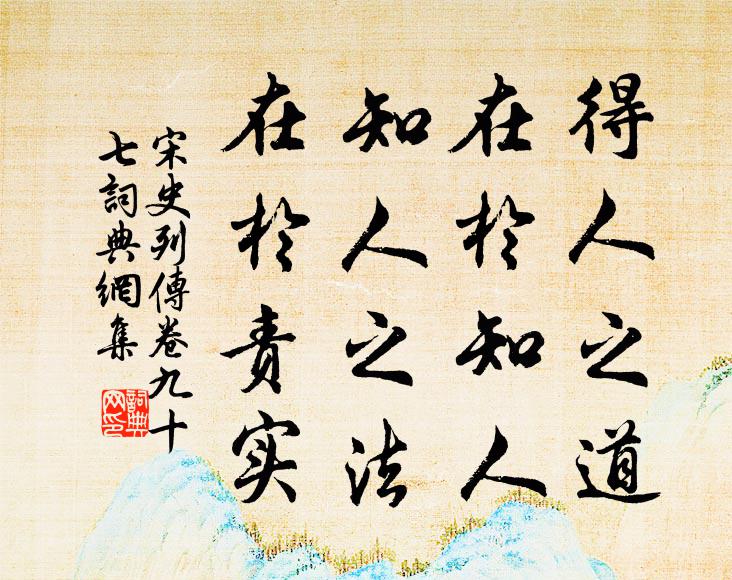 得人之道
在於知人
知人之法
在於责实
宋史列傳卷九十
七詞典網集
詞典
网印